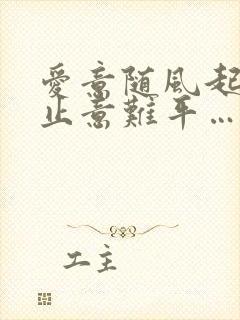 愛意随風起
止意難平…
工主